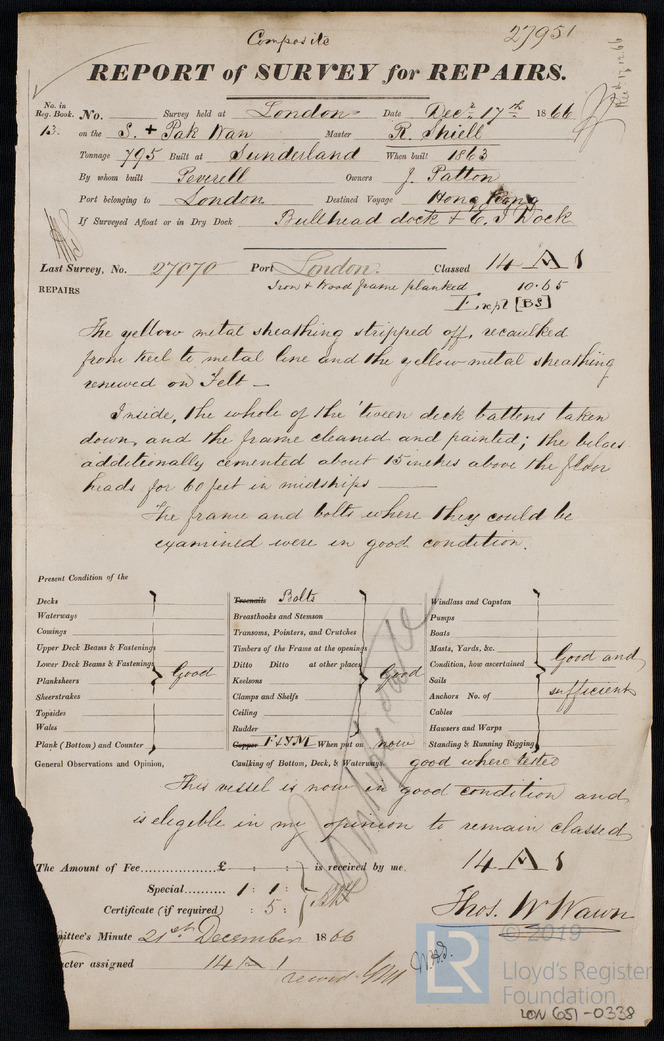 Composite
27951
REPORT of SURVEY for REPAIRS.
Recd 17.12.66
No. in Reg. Book. No. Survey held at London Date Decr 17th 1866
13. on the S. + Pak Wan Master R. Shiell
Tonnage 795 Built at Sunderland When built 1863
By whom built Peverell Owners J. Patton
Port belonging to London Destined Voyage Hong Kong
If Surveyed Afloat or in Dry Dock Bullhead dock & E. I Dock
Last Survey, No. 27070 Port London. Classed 14 A 1
REPAIRS Iron & Wood frame planked 10.65
Expl [BS]
The yellow metal sheathing stripped off, recaulked
from keel to metal line and the yellow metal sheathing
renewed on Felt —
Inside, the whole of the 'tween deck battens taken
down, and the frame cleaned and painted; the bilges
additionally cemented about 15 inches above the floor
heads for 60 feet in midships —
The frame and bolts where they could be
examined were in good condition.
Present Condition of the
Decks
Waterways
Comings
Upper Deck Beams & Fastenings
Lower Deck Beams & Fastenings
Planksheers
Sheerstrakes
Topsides
Wales
Plank (Bottom) and Counter
Good
Treenails Bolts
Breasthooks and Stemson
Transoms, Pointers, and Crutches
Timbers of the Frame at the openings
Ditto Ditto at other places
Keelsons
Clamps and Shelfs
Ceiling
Rudder
Good
Copper F & YM When put on now
Windlass and Capstan
Pumps
Boats
Masts, Yards, &c.
Condition, how ascertained
Sails
Anchors No. of
Cables
Hawsers and Warps
Standing & Running Rigging
Good and
sufficient
General Observations and Opinion, Caulking of Bottom, Deck, & Waterways good where tested
This vessel is now in good condition and
is eligible in my opinion to remain classed
14 A 1
The Amount of Fee £ : : is received by me.
Special 1 : 1 :
Certificate (if required) : 5 :
Thos. W Wawn
mittee's Minute 21st December 1866
acter assigned 14 A 1
© 2019
LR
Lloyd's Register
Foundation
LON 651-0338